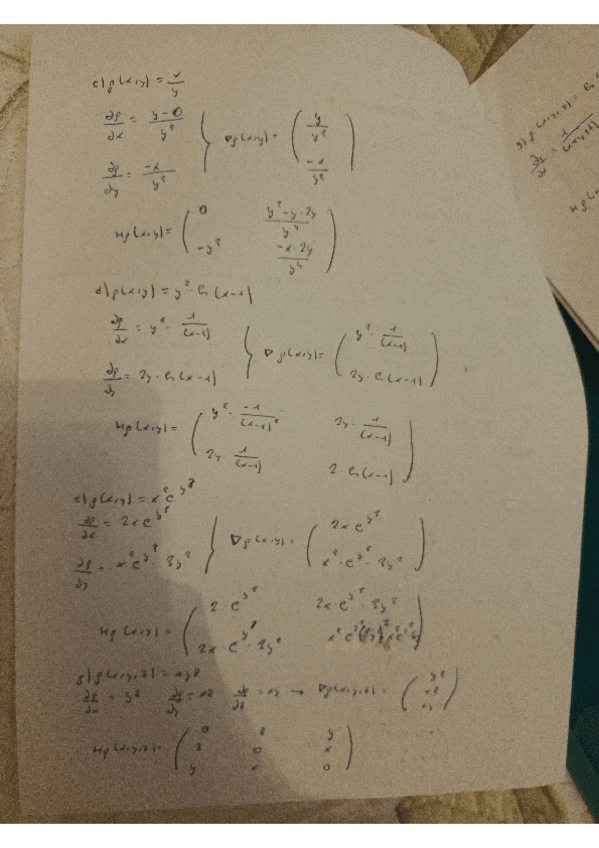 c) f(x,y) = x/y
∂f/∂x = (y-0)/y² } ∇f(x,y) = ( y/y²
∂f/∂y = -x/y² -x/y² )
Hf(x,y) = ( 0 (y²-y·2y)/y⁴
-y² (-x·2y)/y⁴ )
d) f(x,y) = y²·ln(x-1)
∂f/∂x = y²· 1/(x-1) } ∇f(x,y) = ( y²· 1/(x-1)
∂f/∂y = 2y·ln(x-1) 2y·ln(x-1) )
Hf(x,y) = ( y²· -1/(x-1)² 2y· 1/(x-1)
2y· 1/(x-1) 2·ln(x-1) )
e) f(x,y) = x²e^y³
∂f/∂x = 2xe^y³ } ∇f(x,y) = ( 2xe^y³
∂f/∂y = x²e^y³·3y² x²·e^y³·3y² )
Hf(x,y) = ( 2·e^y³ 2x·e^y³·3y²
2x e^y³·3y² x²e^y³ )
f) f(x,y,z) = xyz
∂f/∂x = yz ∂f/∂y = xz ∂f/∂z = xy → ∇f(x,y,z) = ( yz
xz
xy )
Hf(x,y,z) = ( 0 z y
z 0 x
y x 0 )
g) f(x,y,z) = ln(
∂f/∂x = 1/(x+y+z)
Hf(x